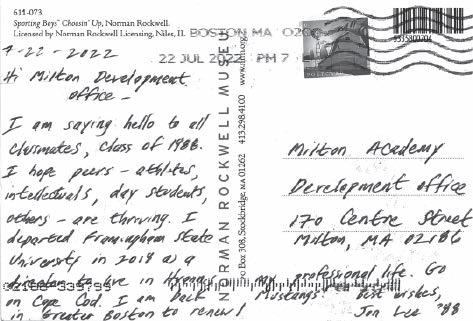 611-073
Sporting Boys: Choosin' Up, Norman Rockwell.
Licensed by Norman Rockwell Licensing, Niles, IL
BOSTON MA 020
22 JUL 2022 PM 7
7-22-2022
Hi Milton Development
office -
I am saying hello to all
classmates, class of 1988.
I hope peers - athletes,
intellectuals, day students,
others - are thriving. I
departed Framingham State
University in 2018 as a
to live in
on Cape Cod. I am back
in Greater Boston to renew
my professional life. Go
Mustangs! Best wishes,
Jon Lee '88
NORMAN ROCKWELL MUSEUM
PO Box 308, Stockbridge, MA 01262 413.298.4100
Milton Academy
Development office
170 Centre Street
Milton, MA 02186